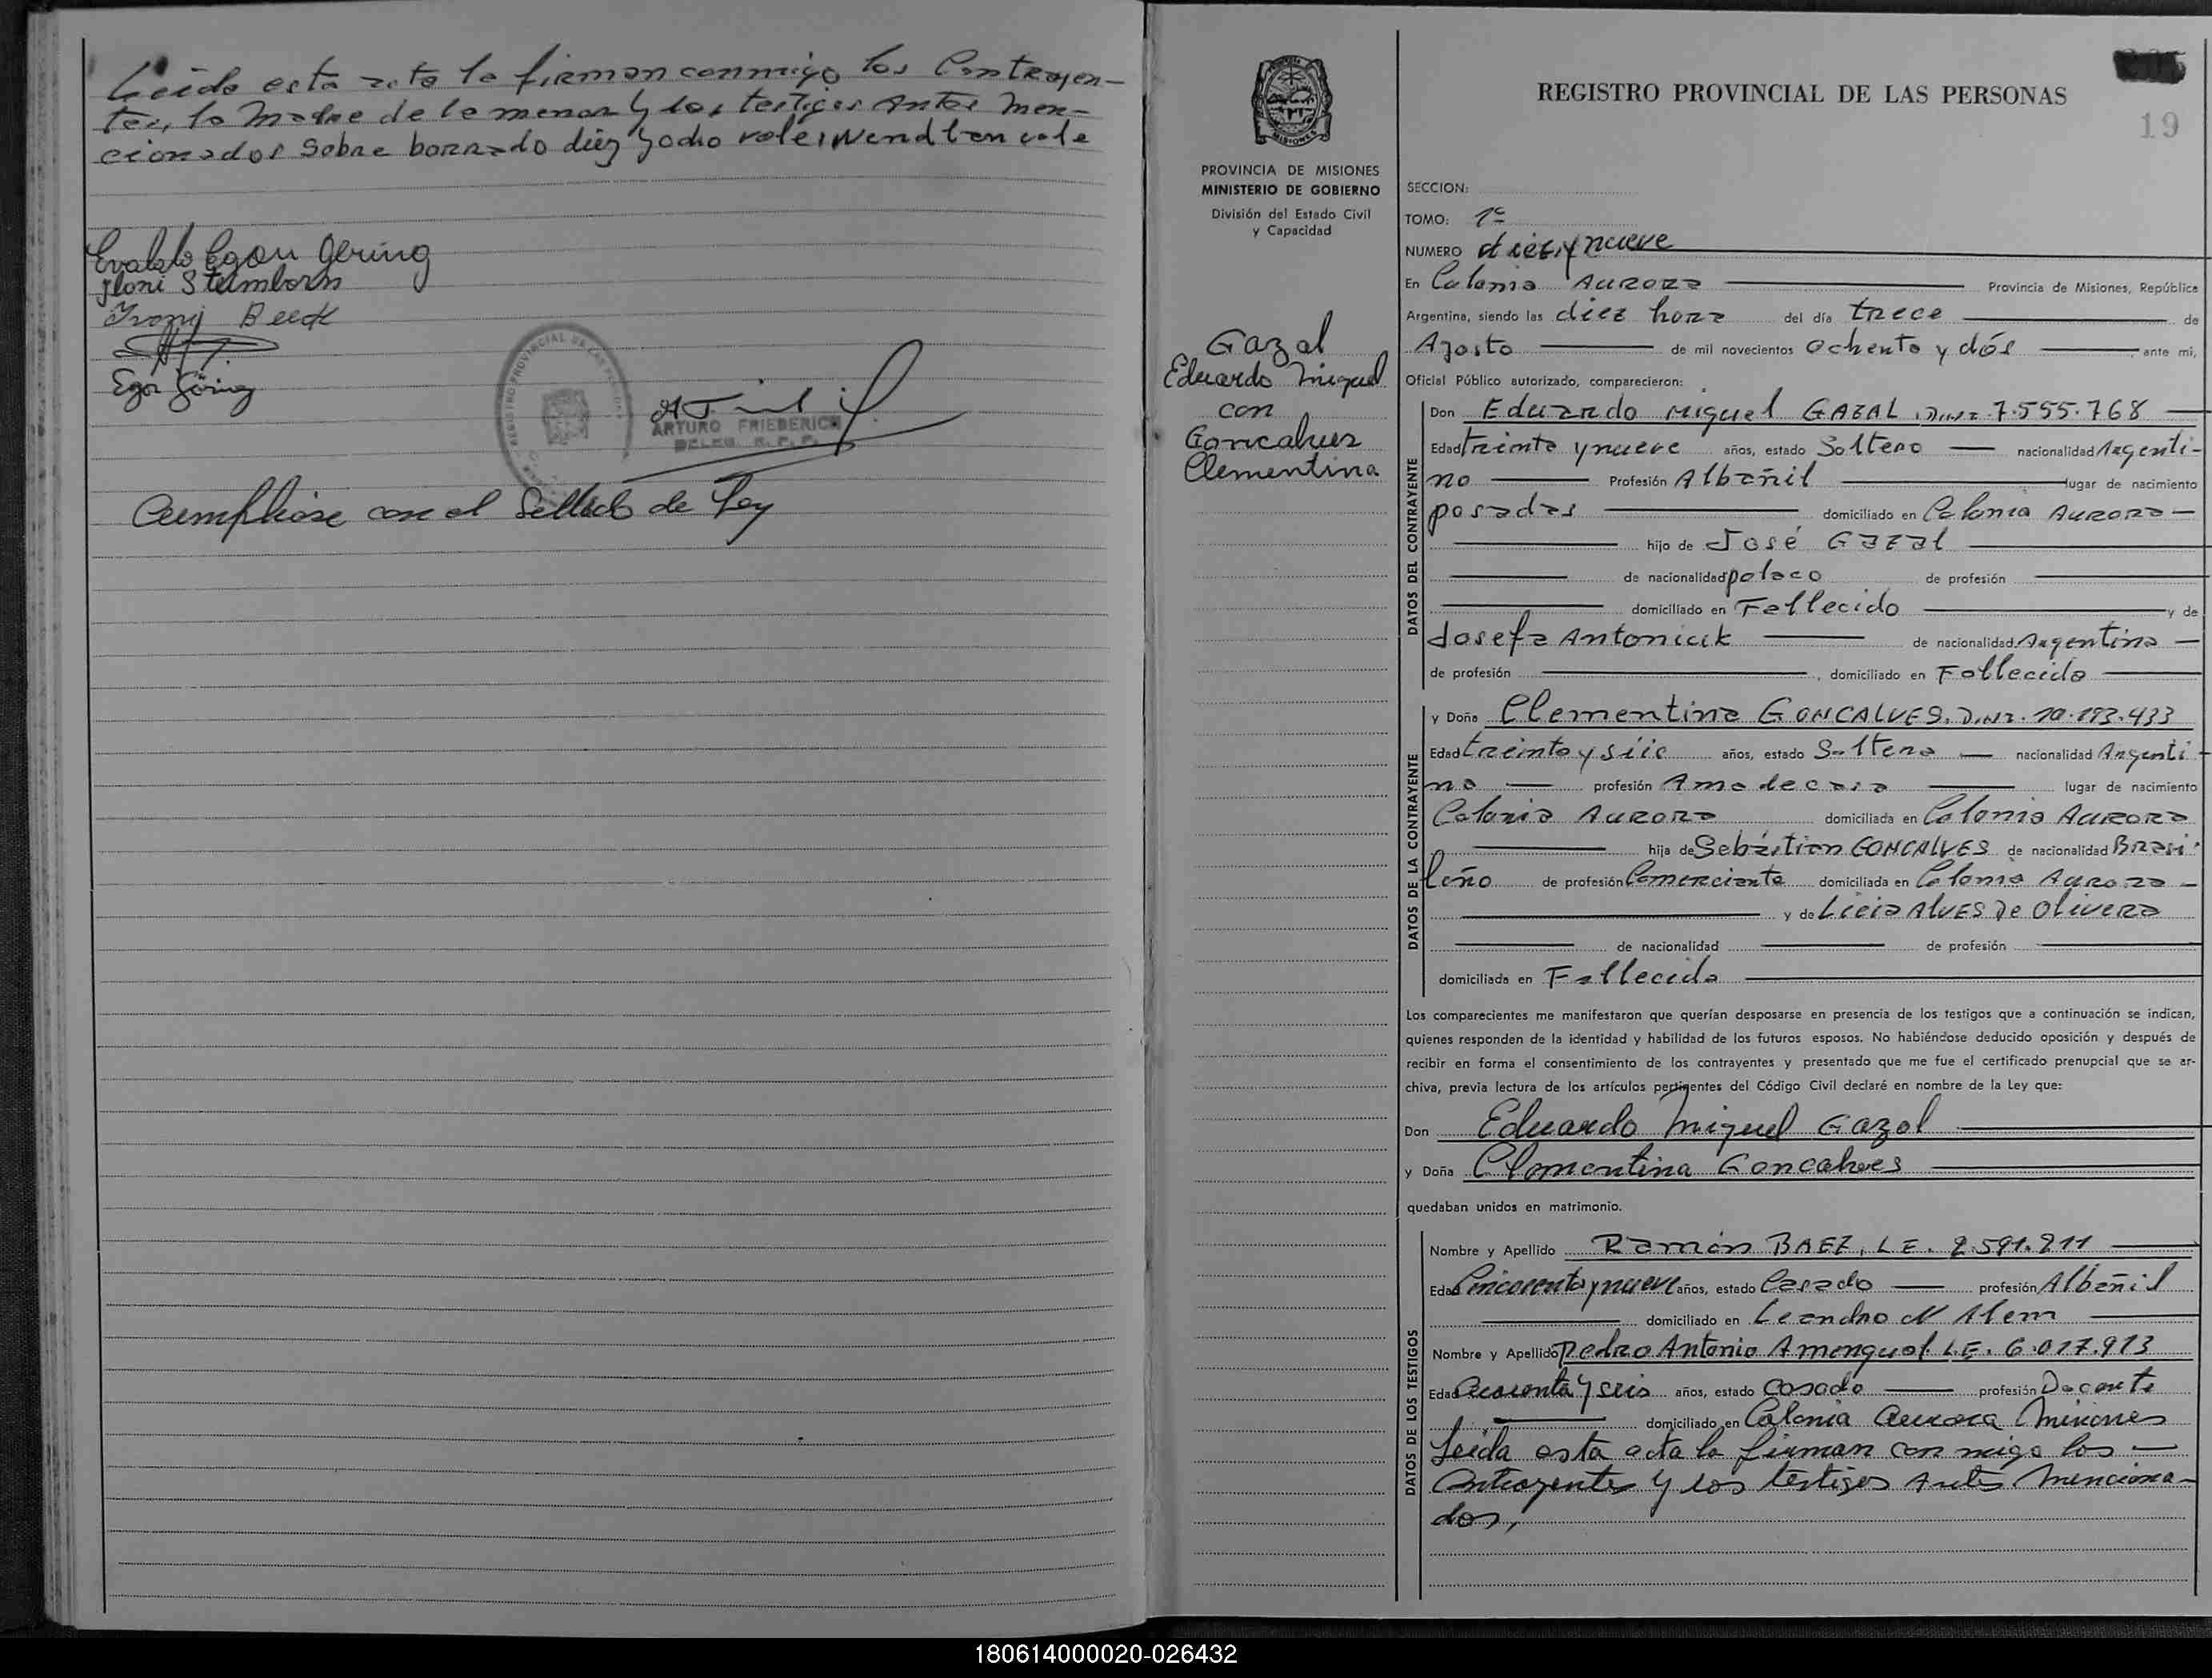 Leída esta acta la firman conmigo los Contrayen-
tes, la Madre de la menor y los testigos Antes men-
cionados Sobre borrado diez y ocho vale, Wendlen vale
Evaldo Egon Gering
Iloni Steimborn
Irony Beck
Egon Göring
REGISTRO PROVINCIAL DE LAS PERSONAS
ARTURO FRIEDERICH
DELEG. R. P. P.
Cumpliose con el Sellado de Ley
PROVINCIA DE MISIONES
MINISTERIO DE GOBIERNO
División del Estado Civil
y Capacidad
Gazal
Eduardo Miguel
con
Goncalves
Clementina
REGISTRO PROVINCIAL DE LAS PERSONAS
19
SECCION:
TOMO: 1º
NUMERO diez y nueve
En Colonia Aurora Provincia de Misiones, República
Argentina, siendo las diez hora del día trece de
Agosto de mil novecientos ochenta y dós , ante mi,
Oficial Público autorizado, comparecieron:
DATOS DEL CONTRAYENTE
Don Eduardo Miguel GAZAL, D.N.I. 7.555.768
Edad treinta y nueve años, estado Soltero nacionalidad Argenti-
no Profesión Albañil lugar de nacimiento
posadas domiciliado en Colonia Aurora
hijo de José Gazal
de nacionalidad polaco de profesión
domiciliado en Fallecido y de
Josefa Antoniuk de nacionalidad Argentina
de profesión , domiciliado en Fallecida
DATOS DE LA CONTRAYENTE
y Doña Clementina GONCALVES. D.N.I. 10.193.433
Edad treinta y siis años, estado Soltera nacionalidad Argenti
na profesión Ama de casa lugar de nacimiento
Colonia Aurora domiciliada en Colonia Aurora
hija de Sebástian GONCALVES de nacionalidad Brasi
leño de profesión Comerciante domiciliada en Colonia Aurora
y de Licia Alves De Olivera
de nacionalidad de profesión
domiciliada en Fallecida
Los comparecientes me manifestaron que querían desposarse en presencia de los testigos que a continuación se indican,
quienes responden de la identidad y habilidad de los futuros esposos. No habiéndose deducido oposición y después de
recibir en forma el consentimiento de los contrayentes y presentado que me fue el certificado prenupcial que se ar-
chiva, previa lectura de los artículos pertinentes del Código Civil declaré en nombre de la Ley que:
Don Eduardo Miguel Gazal
y Doña Clementina Goncalves
quedaban unidos en matrimonio.
DATOS DE LOS TESTIGOS
Nombre y Apellido Ramón BAEZ, L E. 2.591.211
Edad Cincuenta y nueve años, estado Casado profesión Albañil
domiciliado en Leandro N Alem
Nombre y Apellido Pedro Antonio Amengual L.E. 6.017.913
Edad Cuarenta y seis años, estado Casado profesión Docente
domiciliado en Colonia Aurora Misiones
Leída esta acta la firman con migo los
Contrayentes y los testigos antes menciona-
dos,
180614000020-026432